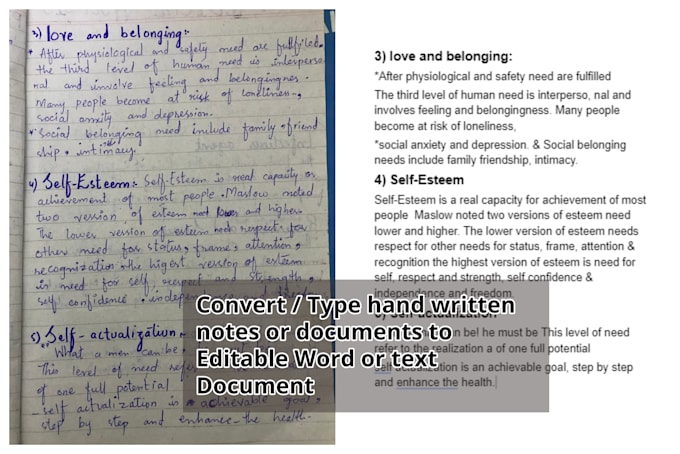 3) love and belonging:-
* After physiological and safety need are fulfilled.
the third level of human need is interperso
nal and involve feeling and belongingnes.
Many people become at risk of loneliness,
social anxity and depression.
* Social belonging need include family, friend
ship, intimacy.
4) Self-Esteem:- Self-Esteem is real capacity or
achievement of most people. Maslow noted
two version of esteem need lower and higher.
The lower version of esteem need respect for
other need for status, frame, attention,
recognization, the higest version of esteem
is need for self respect and strength,
self confidence
5) Self-actualization
"What a man can be,
This level of need refer
of one full potential
- self actualization is achievable goal,
step by step and enhance the health.
3) love and belonging:
*After physiological and safety need are fulfilled
The third level of human need is interperso, nal and
involves feeling and belongingness. Many people
become at risk of loneliness,
*social anxiety and depression. & Social belonging
needs include family friendship, intimacy.
4) Self-Esteem
Self-Esteem is a real capacity for achievement of most
people Maslow noted two versions of esteem need
lower and higher. The lower version of esteem needs
respect for other needs for status, frame, attention &
recognition the highest version of esteem is need for
self, respect and strength, self confidence &
independence and freedom.
5) Self actualization
n be! he must be This level of need
refer to the realization a of one full potential
self actualization is an achievable goal, step by step
and enhance the health.
Convert / Type hand written
notes or documents to
Editable Word or text
Document